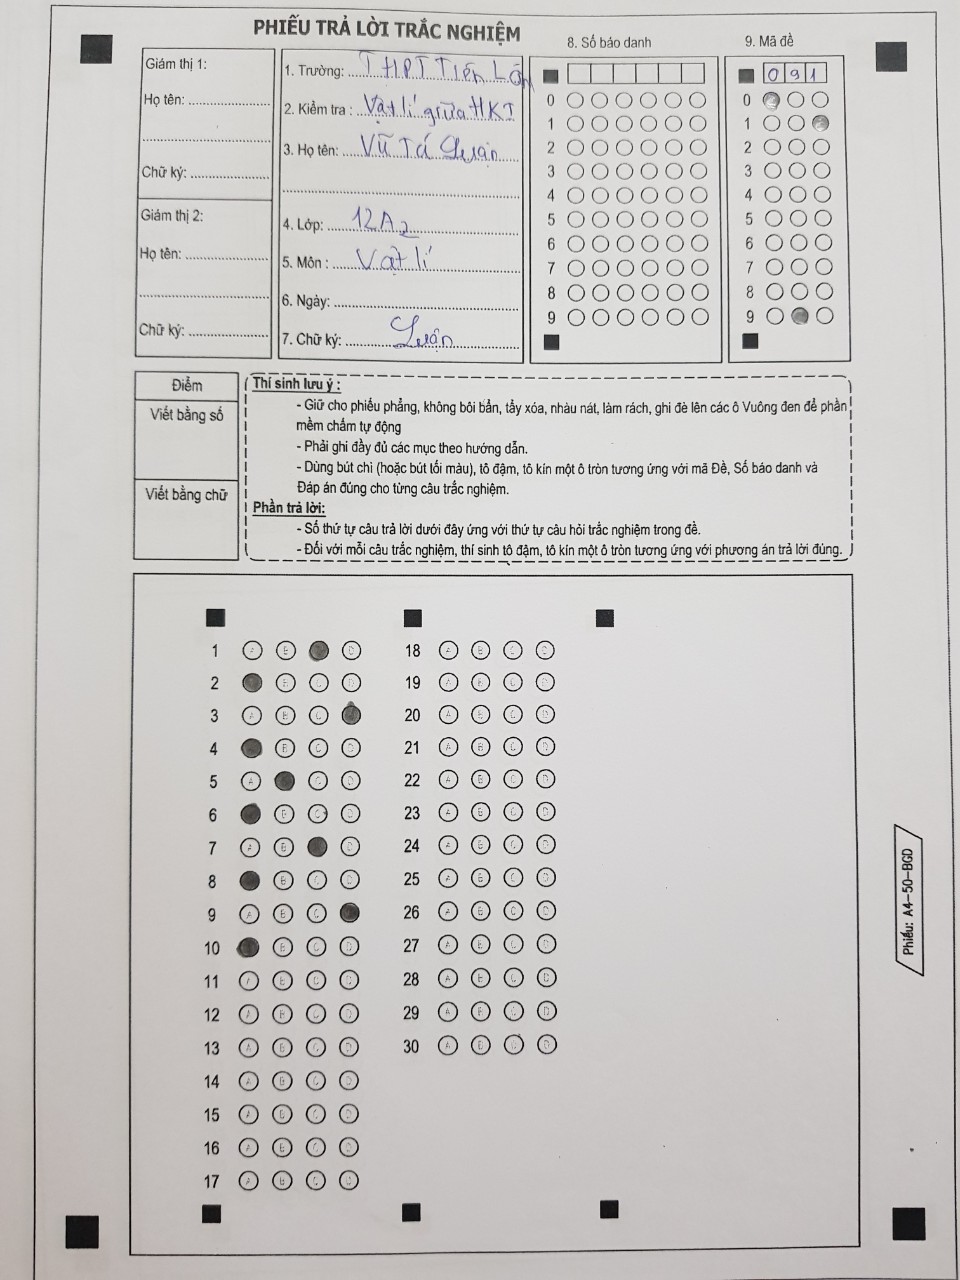 PHIẾU TRẢ LỜI TRẮC NGHIỆM
Giám thị 1:
Họ tên:
Chữ ký:
Giám thị 2:
Họ tên:
Chữ ký:
1. Trường: THPT Tiên Lãng
2. Kiểm tra : Vật lí giữa HKI
3. Họ tên: Vũ Tá Luận
4. Lớp: 12A2
5. Môn : Vật lí
6. Ngày:
7. Chữ ký: Luận
8. Số báo danh
0
1
2
3
4
5
6
7
8
9
9. Mã đề
0 9 1
0
1
2
3
4
5
6
7
8
9
Điểm
Viết bằng số
Viết bằng chữ
Thí sinh lưu ý :
- Giữ cho phiếu phẳng, không bôi bẩn, tẩy xóa, nhàu nát, làm rách, ghi đè lên các ô Vuông đen để phần
mềm chấm tự động
- Phải ghi đầy đủ các mục theo hướng dẫn.
- Dùng bút chì (hoặc bút tối màu), tô đậm, tô kín một ô tròn tương ứng với mã Đề, Số báo danh và
Đáp án đúng cho từng câu trắc nghiệm.
Phần trả lời:
- Số thứ tự câu trả lời dưới đây ứng với thứ tự câu hỏi trắc nghiệm trong đề.
- Đối với mỗi câu trắc nghiệm, thí sinh tô đậm, tô kín một ô tròn tương ứng với phương án trả lời đúng.
1 A B D
2 B C D
3 A B C
4 B C D
5 A C D
6 B C D
7 A B D
8 B C D
9 A B C
10 B C D
11 A B C D
12 A B C D
13 A B C D
14 A B C D
15 A B C D
16 A B C D
17 A B C D
18 A B C D
19 A B C D
20 A B C D
21 A B C D
22 A B C D
23 A B C D
24 A B C D
25 A B C D
26 A B C D
27 A B C D
28 A B C D
29 A B C D
30 A B C D
Phiếu: A4-50-BGD